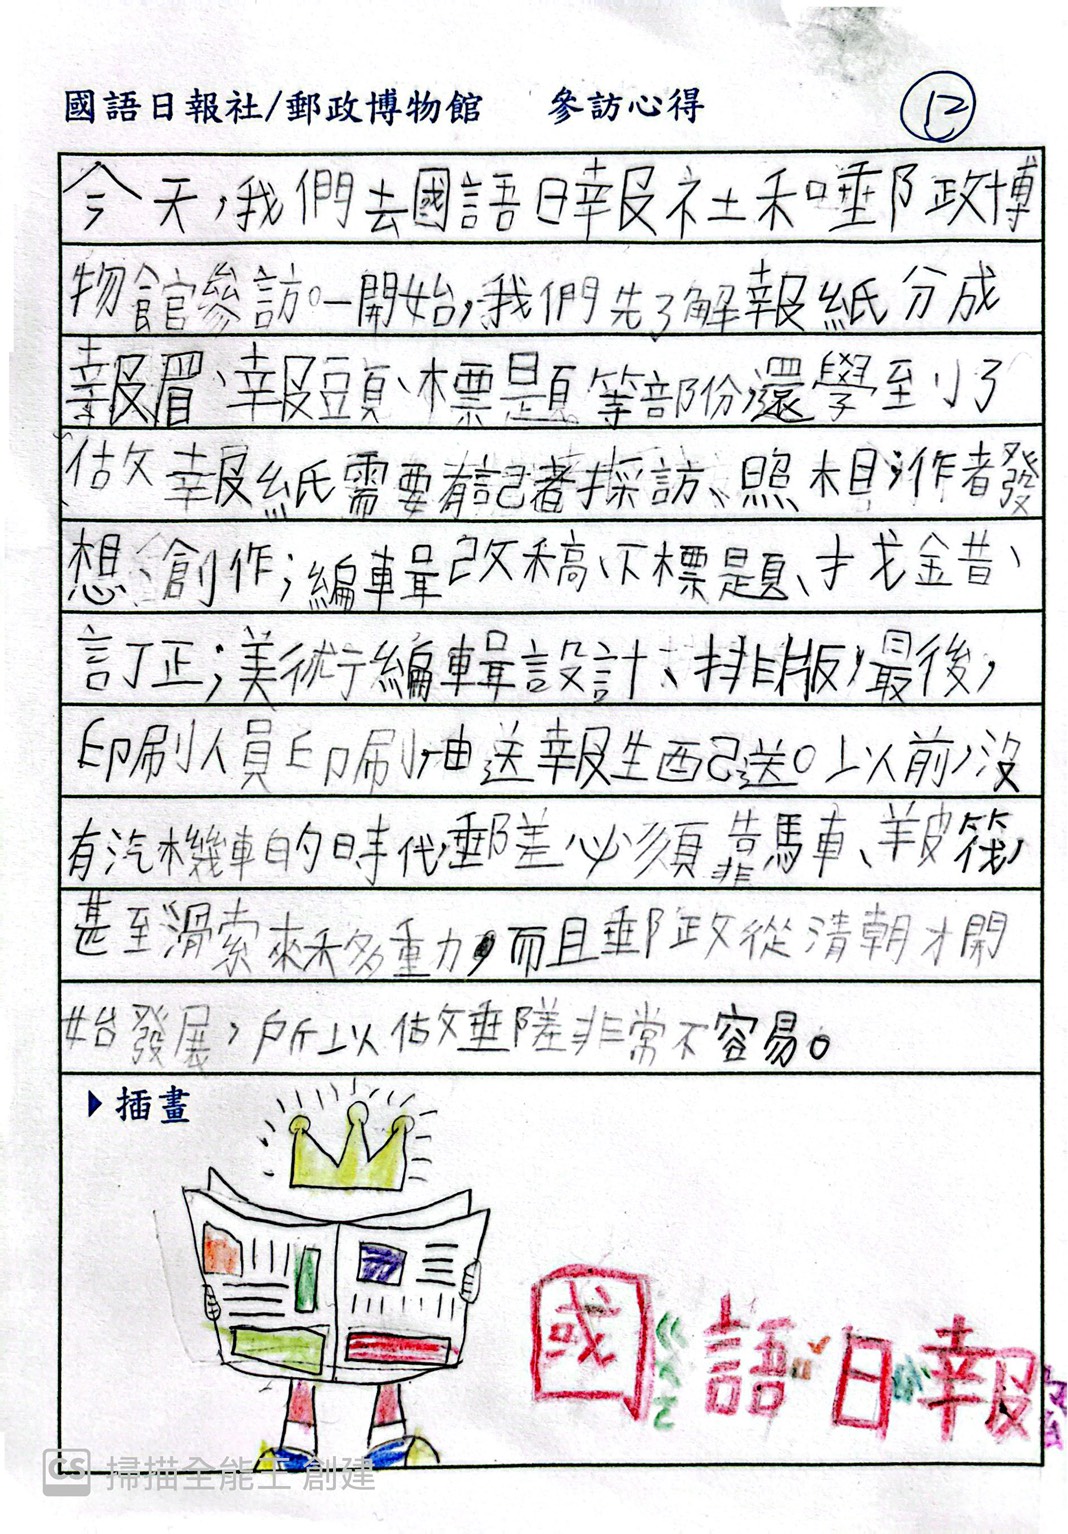 國語日報社/郵政博物館 參訪心得
12
今天，我們去國語日報社和郵政博
物館參訪。一開始，我們先了解報紙分成
報眉、報頭、標題等部份，還學到了
做報紙需要有記者採訪、照相；作者發
想、創作；編輯改稿、下標題、找錯、
訂正；美術編輯設計、排版，最後，
印刷人員印刷，由送報生配送。以前，沒
有汽機車的時代，郵差必須靠馬車、羊皮筏，
甚至滑索來移動，而且郵政從清朝才開
始發展，所以做郵差非常不容易。
▶插畫
國語日報
CS 掃描全能王 創建